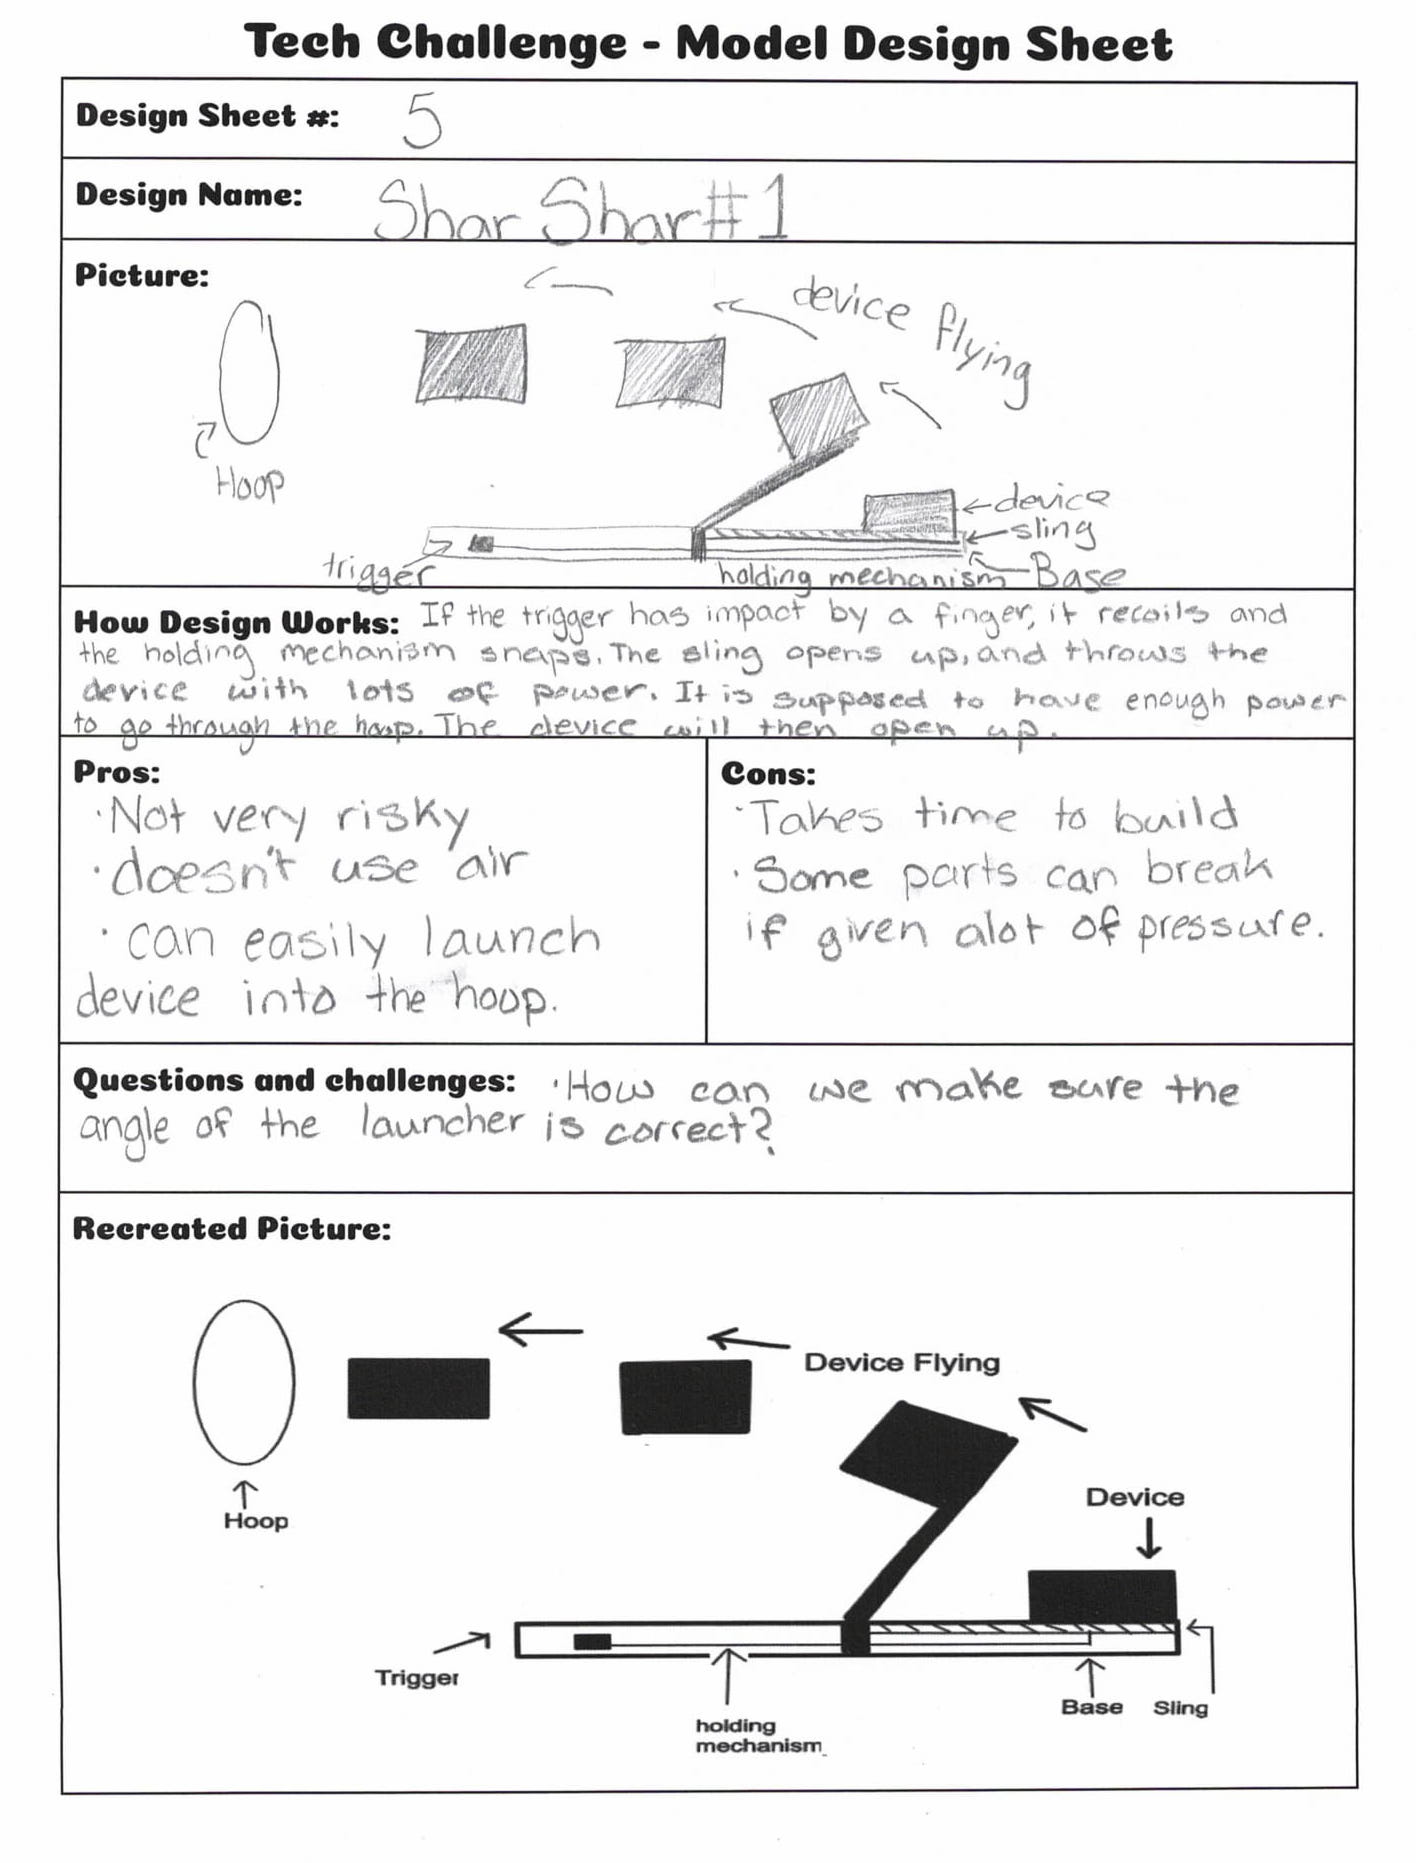 Tech Challenge - Model Design Sheet
Design Sheet #: 5
Design Name: Shar Shar #1
Picture:
device flying
Hoop
device
sling
trigger
holding mechanism
Base
How Design Works: If the trigger has impact by a finger, it recoils and
the holding mechanism snaps. The sling opens up, and throws the
device with lots of power. It is supposed to have enough power
to go through the hoop. The device will then open up.
Pros:
·Not very risky
·doesn't use air
·can easily launch
device into the hoop.
Cons:
·Takes time to build
·Some parts can break
if given alot of pressure.
Questions and challenges: ·How can we make sure the
angle of the launcher is correct?
Recreated Picture:
Device Flying
Device
Hoop
Trigger
holding
mechanism
Base
Sling